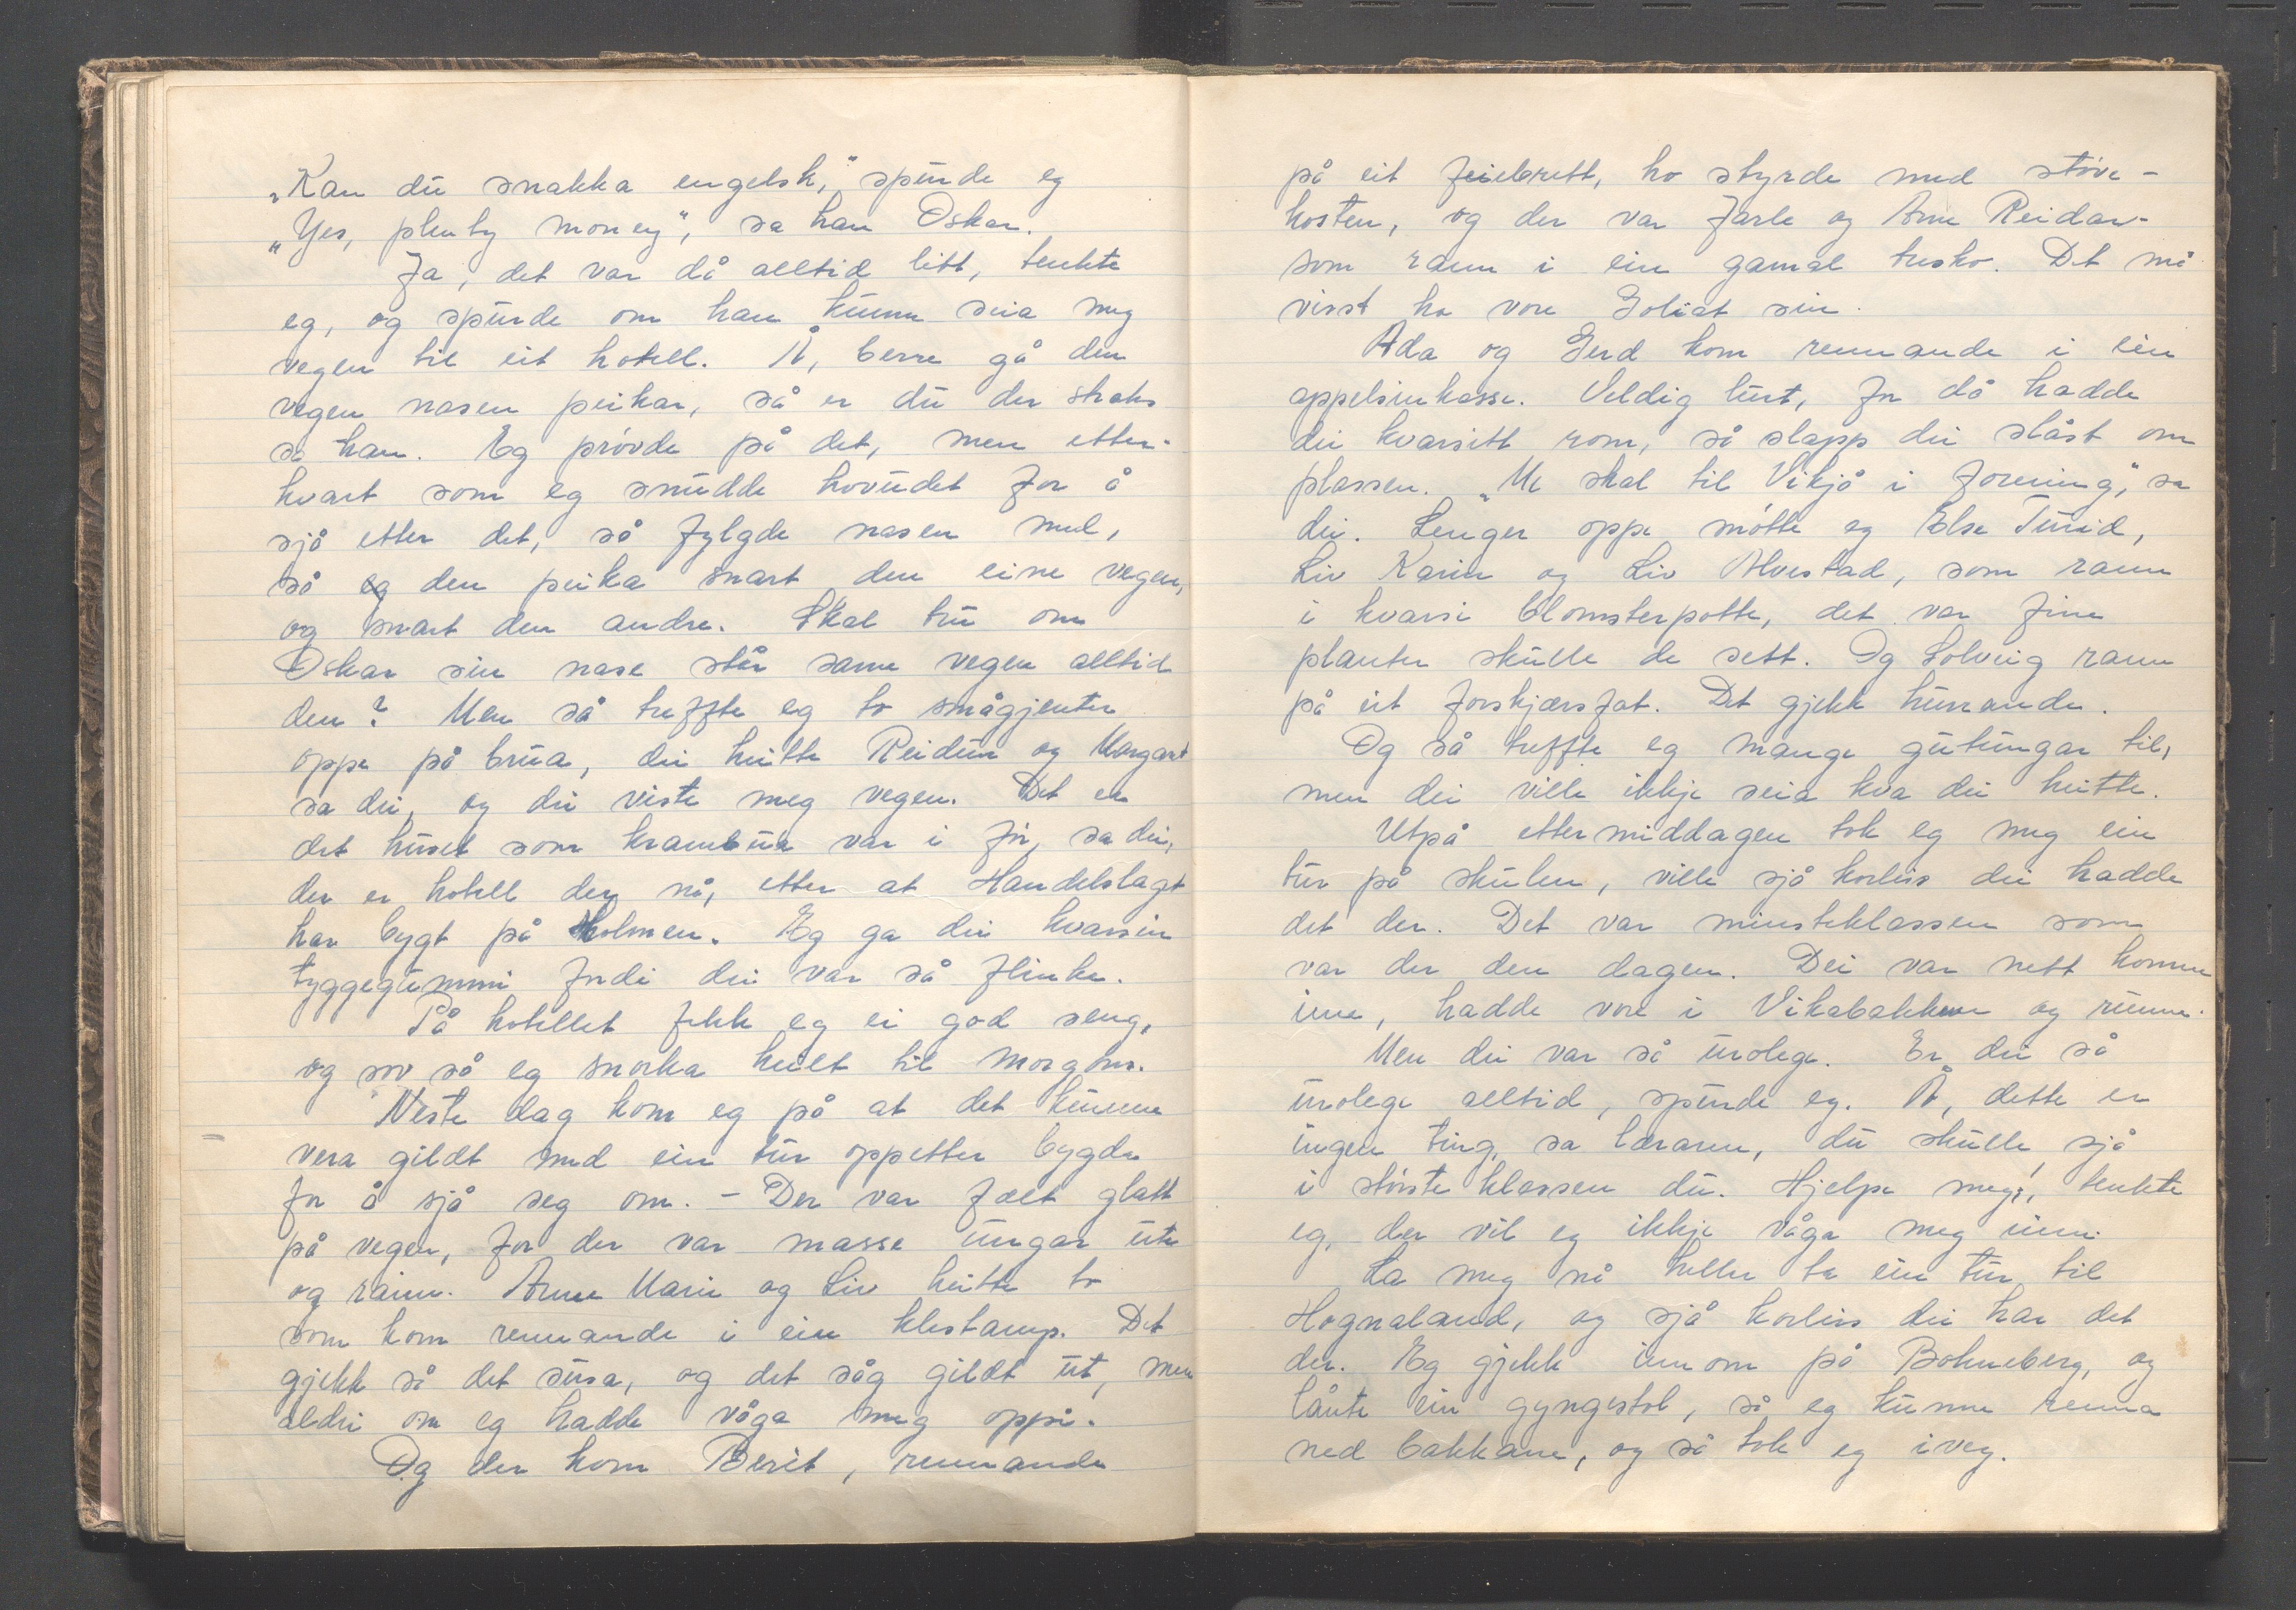 „Kan du snakka engelsk," spurde eg
„Yes, plenty money", sa han Oskar.
Ja, det var då alltid litt, tenkte
eg, og spurde om han kunne seia meg
vegen til eit hotell. Å, berre gå den
vegen nasen peikar, så er du der straks
sa han. Eg prøvde på det, men etter-
kvart som eg snudde hovudet for å
sjå etter det, så fylgde nasen med,
så den peika snart den eine vegen,
og snart den andre. Skal tru om
Oskar sin nase står same vegen alltid
den? Men så treffte eg to smågjenter
oppe på brua, dei heitte Reidun og Margart
sa dei, og dei viste meg vegen. Det er
det huset som krambua var i før, sa dei,
der er hotell der nå, etter at Handelslagt
har bygt på Holmen. Eg ga dei kvarsin
tyggegummi fordi dei var så flinke.
På hotellet fekk eg ei god seng,
og sov så eg snorka heilt til morgons.
Neste dag kom eg på at det kunne
vera gildt med ein tur oppetter bygda
for å sjå seg om. – Der var fælt glatt
på vegen, for der var masse ungar ute
og rann. Anne Marie og Liv heitte to
som kom rennande i ein klestamp. Det
gjekk så det susa, og det såg gildt ut, men
aldri om eg hadde våga meg oppi.
Og der kom Berit, rennande
på eit feiebrett, ho styrde med støve-
kosten, og der var Jarle og Arne Reidar
som rann i ein gamal tresko. Det må
visst ha vore Goliat sin.
Ada og Gerd kom rennande i ein
appelsinkasse. Veldig lurt, for då hadde
dei kvarsitt rom, så slapp dei slåst om
plassen. „Me skal til Vikjå i forening," sa
dei. Lenger oppe møtte eg Else Turid,
Liv Karin og Liv Alvestad, som rann
i kvarsi blomsterpotte, det var fine
planter skulle de sett. Og Solveig rann
på eit forskjærsfat. Det gjekk hurrande.
Og så treffte eg mange gutungar til,
men dei ville ikkje seia kva dei heitte.
Utpå ettermiddagen tok eg meg ein
tur på skulen, ville sjå korleis dei hadde
det der. Det var minsteklassen som
var der den dagen. Dei var nett komne
inn, hadde vore i Vikabakkane og runne.
Men dei var så urolege. Er dei så
urolege alltid, spurde eg. Å, dette er
ingen ting, sa læraren, du skulle sjå
i største klassen du. Hjelpe meg!, tenkte
eg, der vil eg ikkje våga meg inn.
La meg nå heller ta ein tur til
Hognaland, og sjå korleis dei har det
der. Eg gjekk innom på Bohneberg, og
lånte ein gyngestol, så eg kunne renna
ned bakkane, og så tok eg iveg.